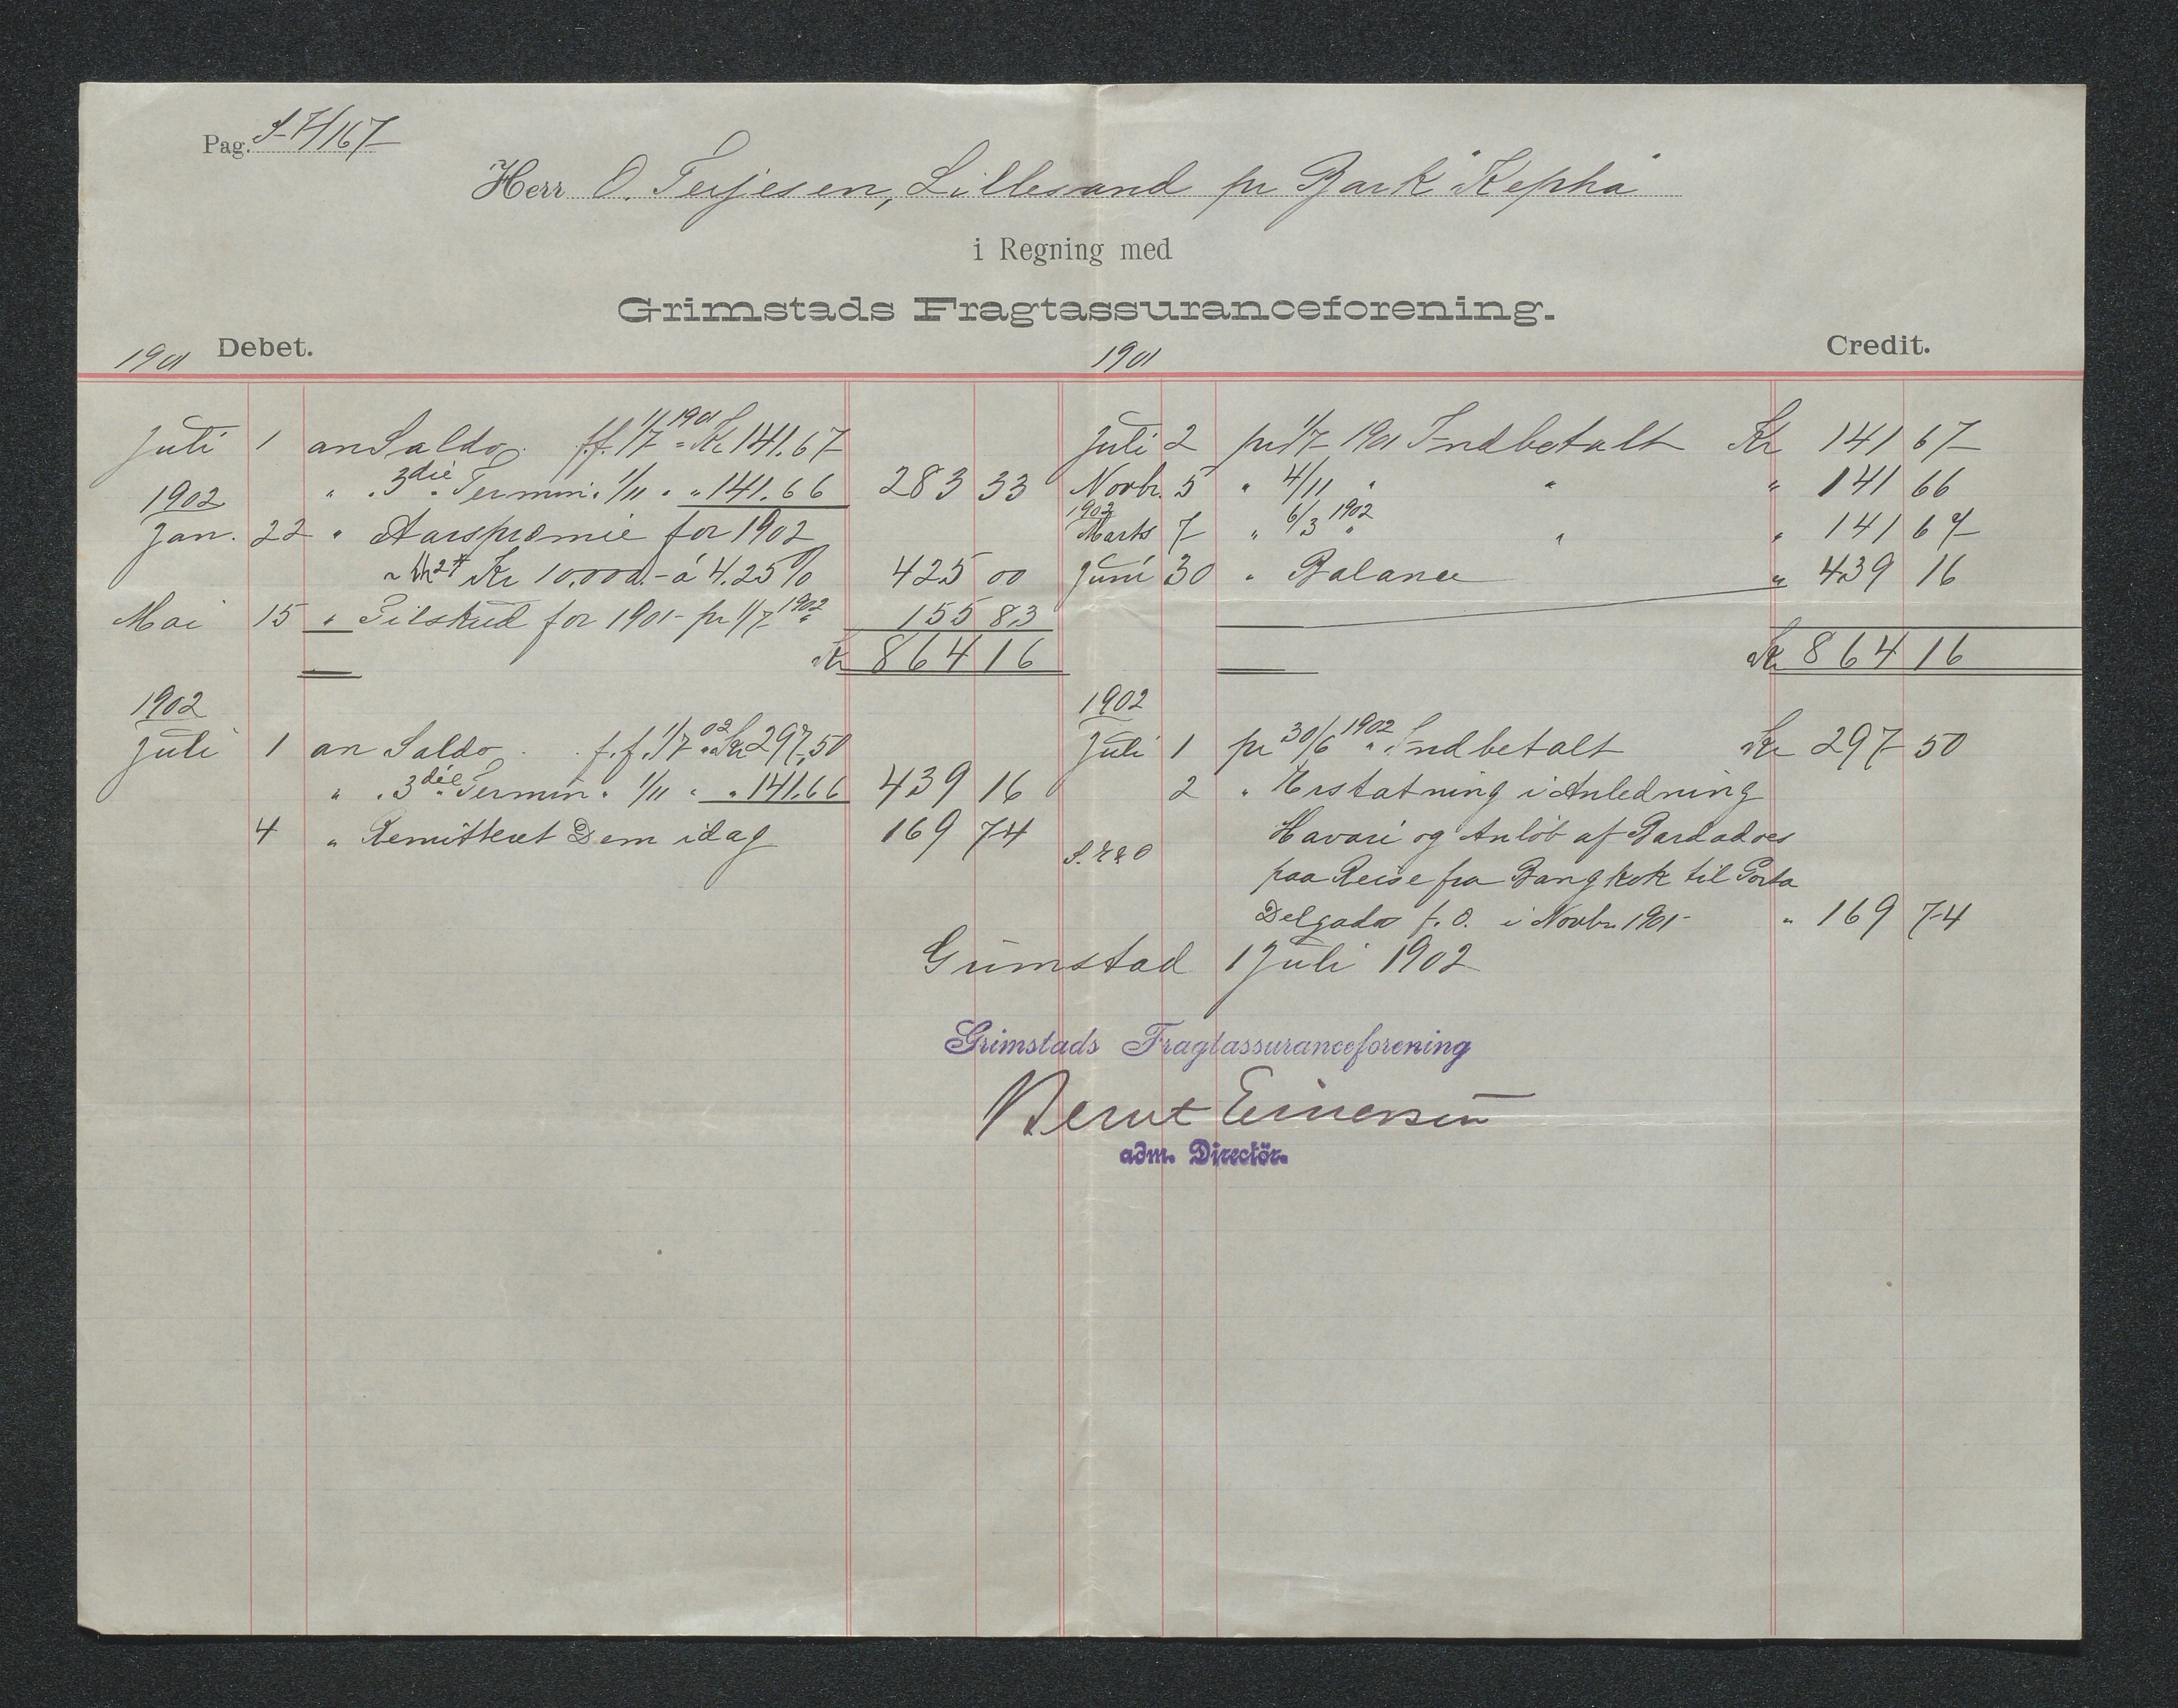 Pag. S-7/167
Herr O. Terjesen, Lillesand pr Bark "Kepha"
i Regning med
Grimstads Fragtassuranceforening.
Debet. Credit.
1901 1901
Juli 1 an Saldo f.f. 1/7 1901 = Kr 141.67
" " 3die Termin " 1/11 " " 141.66 283 33
1902
Jan. 22 " Aarspræmie for 1902
Kr 10.000.- á 4.25% 425 00
Mai 15 " Tilskud for 1901 - pr 1/7 1902 155 83
Kr 864 16
Juli 2 pr 1/7 1901 Indbetalt Kr 141 67
Novbr. 5 " 4/11 " " " 141 66
1902
Marts 7 " 6/3 1902 " " 141 67
Juni 30 " Balance " 439 16
Kr 864 16
1902
Juli 1 an Saldo f.f. 1/7 02 " Kr 297,50
" " 3die Termin " 1/11 " " 141.66 439 16
4 " Remitteret Dem idag 169 74
1902
Juli 1 pr 30/6 1902 Indbetalt Kr 297 50
2 " Erstatning i Anledning
Havari og Anløb af Bardadoes
paa Reise fra Bangkok til Porta
Delgada f. O. i Novbr 1901 - " 169 74
Grimstad 1 Juli 1902
Grimstads Fragtassuranceforening
Bernt Einersen
adm. Directör.